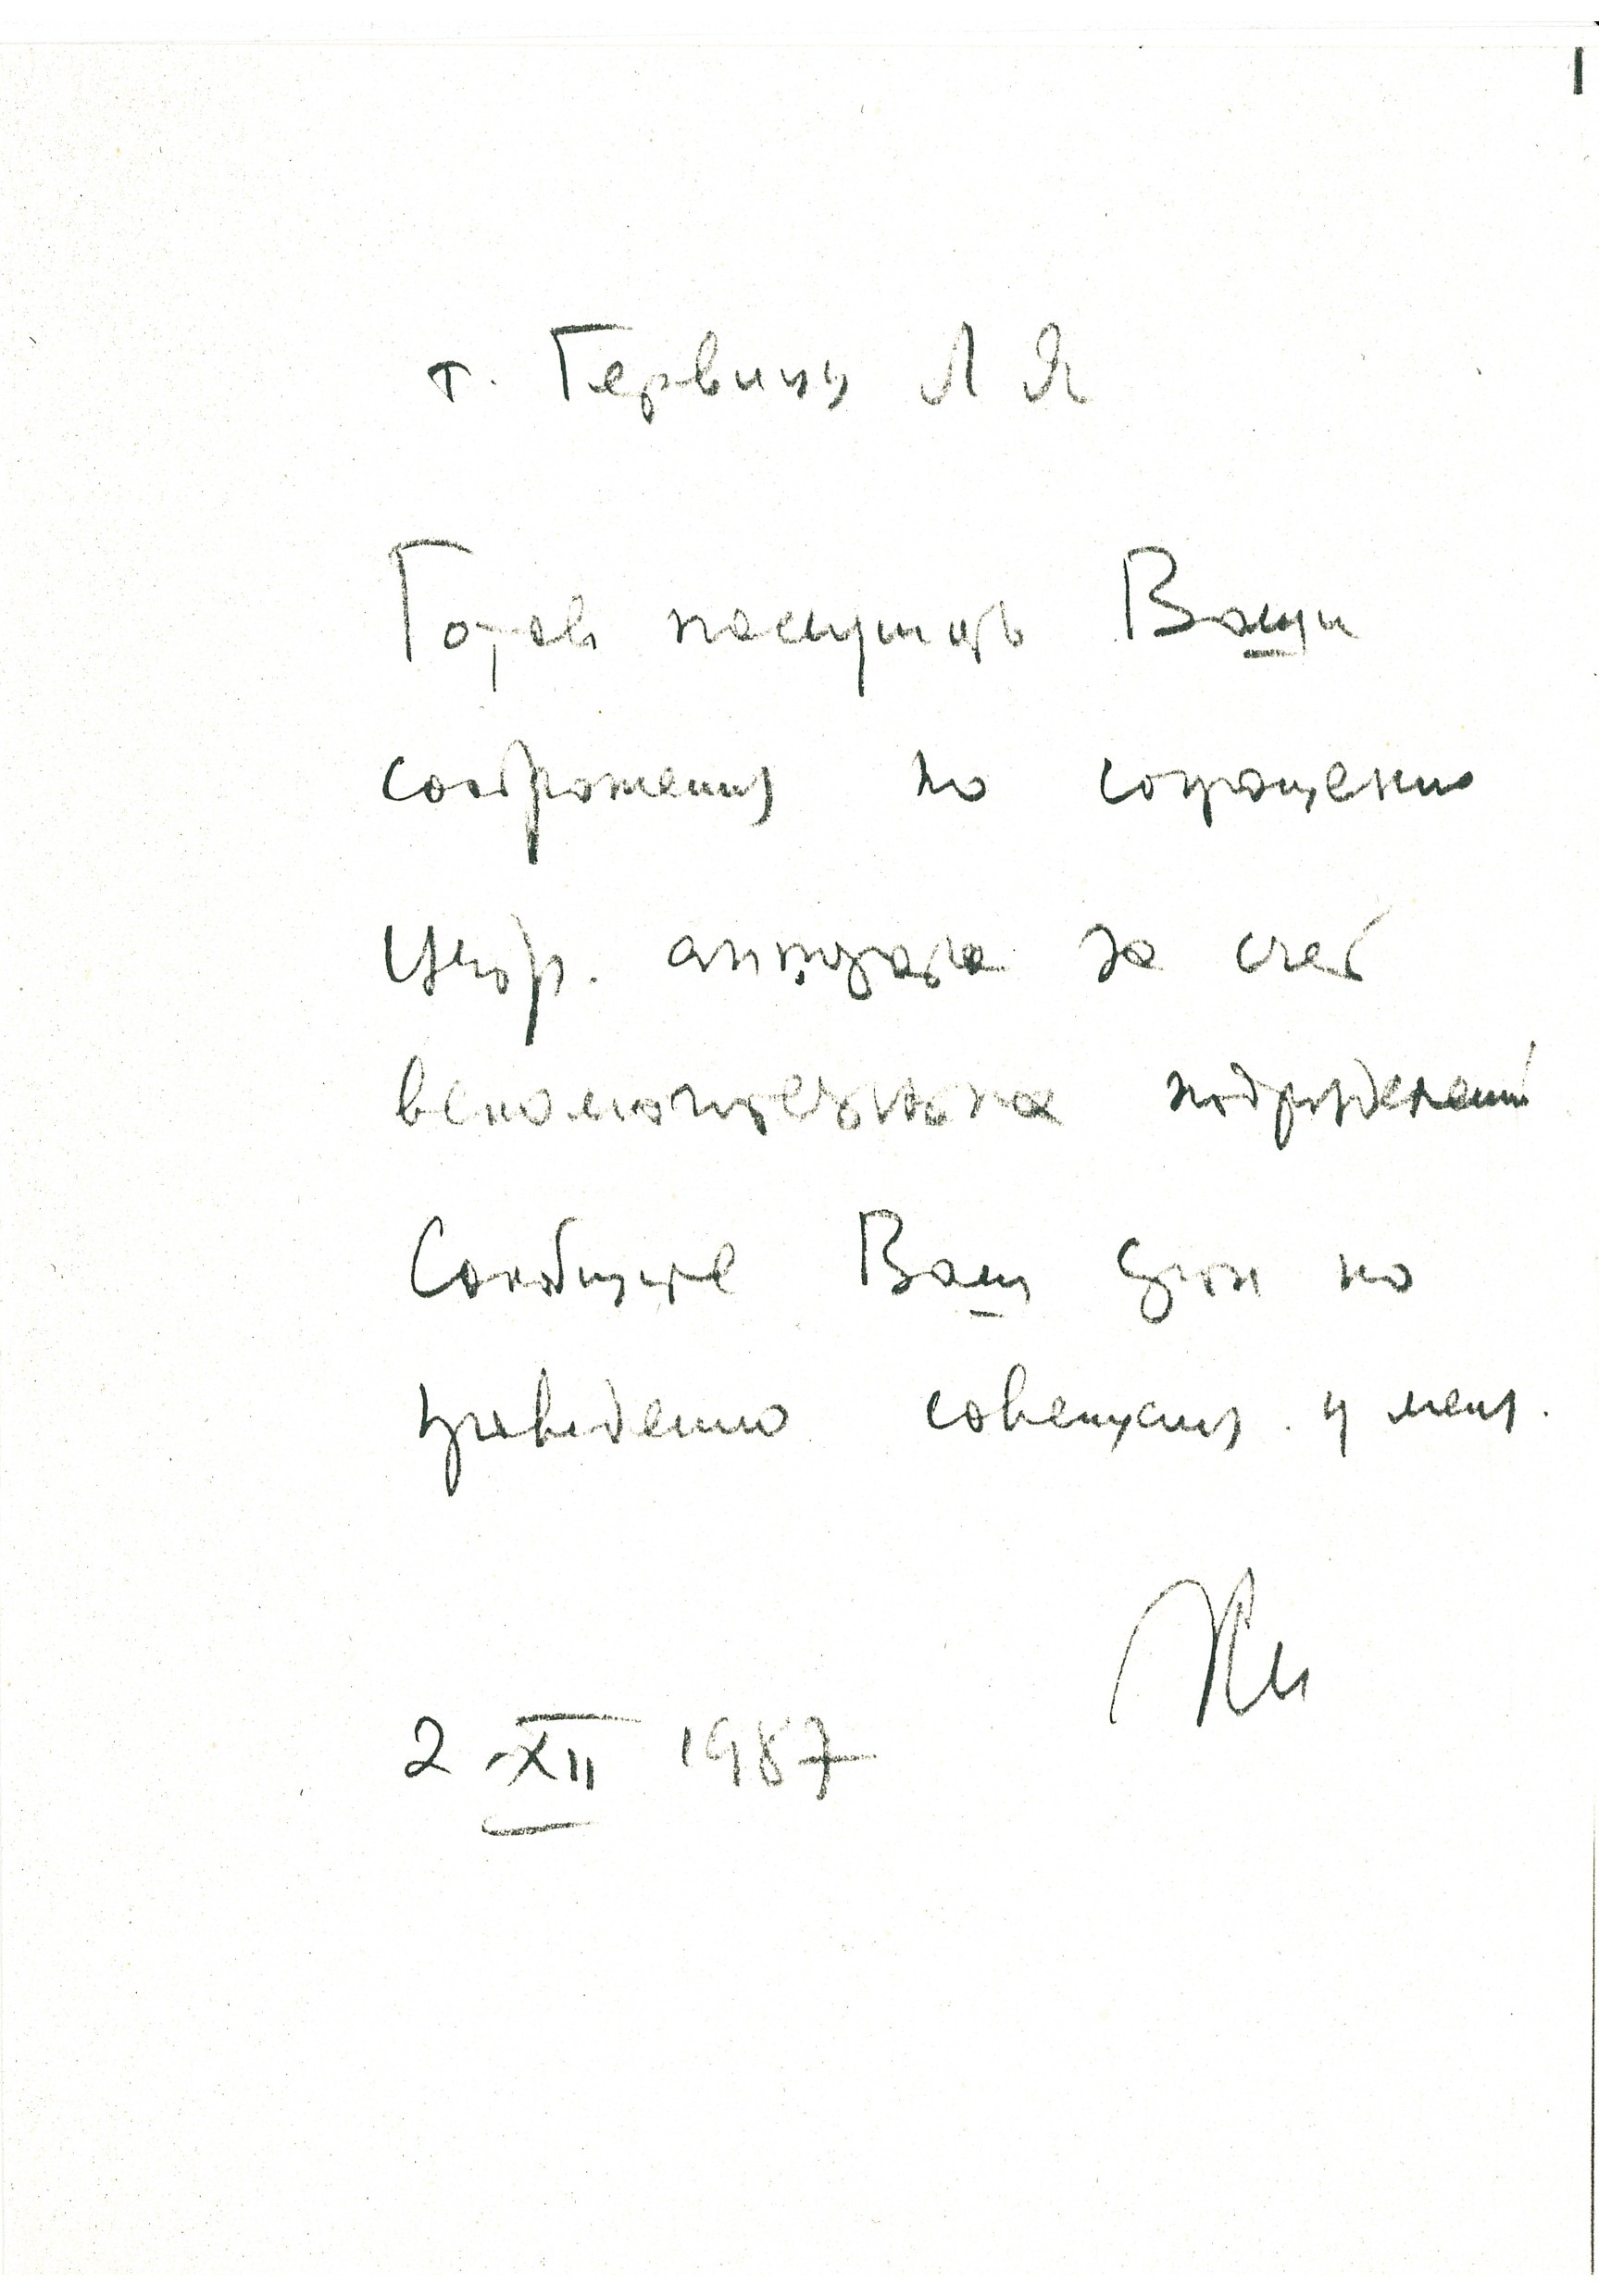 т. Гервицу Л Я
Готов послушать Ваши
соображения по сокращению
центр. аппарата за счет
вспомогательных подразделений
Сообщите Ваш срок по
проведению совещания у меня.
2 XII 1987